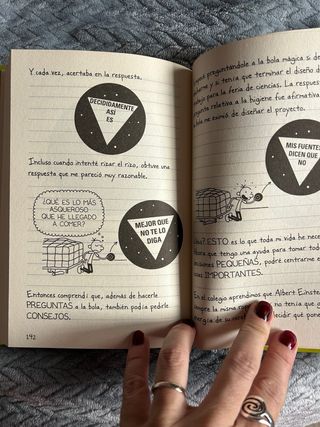 Y cada vez, acertaba en la respuesta.
DECIDIDAMENTE
ASÍ
ES
Incluso cuando intenté rizar el rizo, obtuve una
respuesta que me pareció muy razonable.
¿QUÉ ES LO MÁS
ASQUEROSO
QUE HE LLEGADO
A COMER?
MEJOR QUE
NO TE LO
DIGA
Entonces comprendí que, además de hacerle
PREGUNTAS a la bola, también podía pedirle
CONSEJOS.
142
preguntándole a la bola mágica si de
y si tenía que terminar el diseño d
para la feria de ciencias. La respues
relativa a la higiene fue afirmativa
bola me eximió de diseñar el proyecto.
MIS FUENTES
DICEN QUE
NO
ESTO es lo que toda mi vida he nece
que tengo una ayuda para tomar tod
PEQUEÑAS, podré centrarme e
IMPORTANTES.
En el colegio aprendimos que Albert Einste
compre la misma no tenía que g
energía de su
decidir qué ponerse